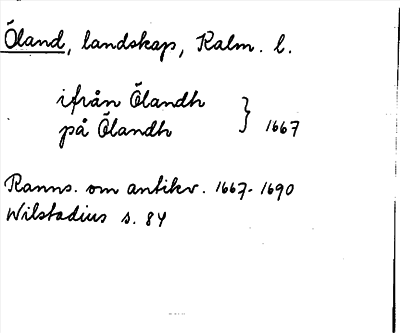 Öland, landskap, Kalm. l.
ifrån Ölandh
på Ölandh } 1667
Ranns. om antikv. 1667-1690
Wilstadius s. 84